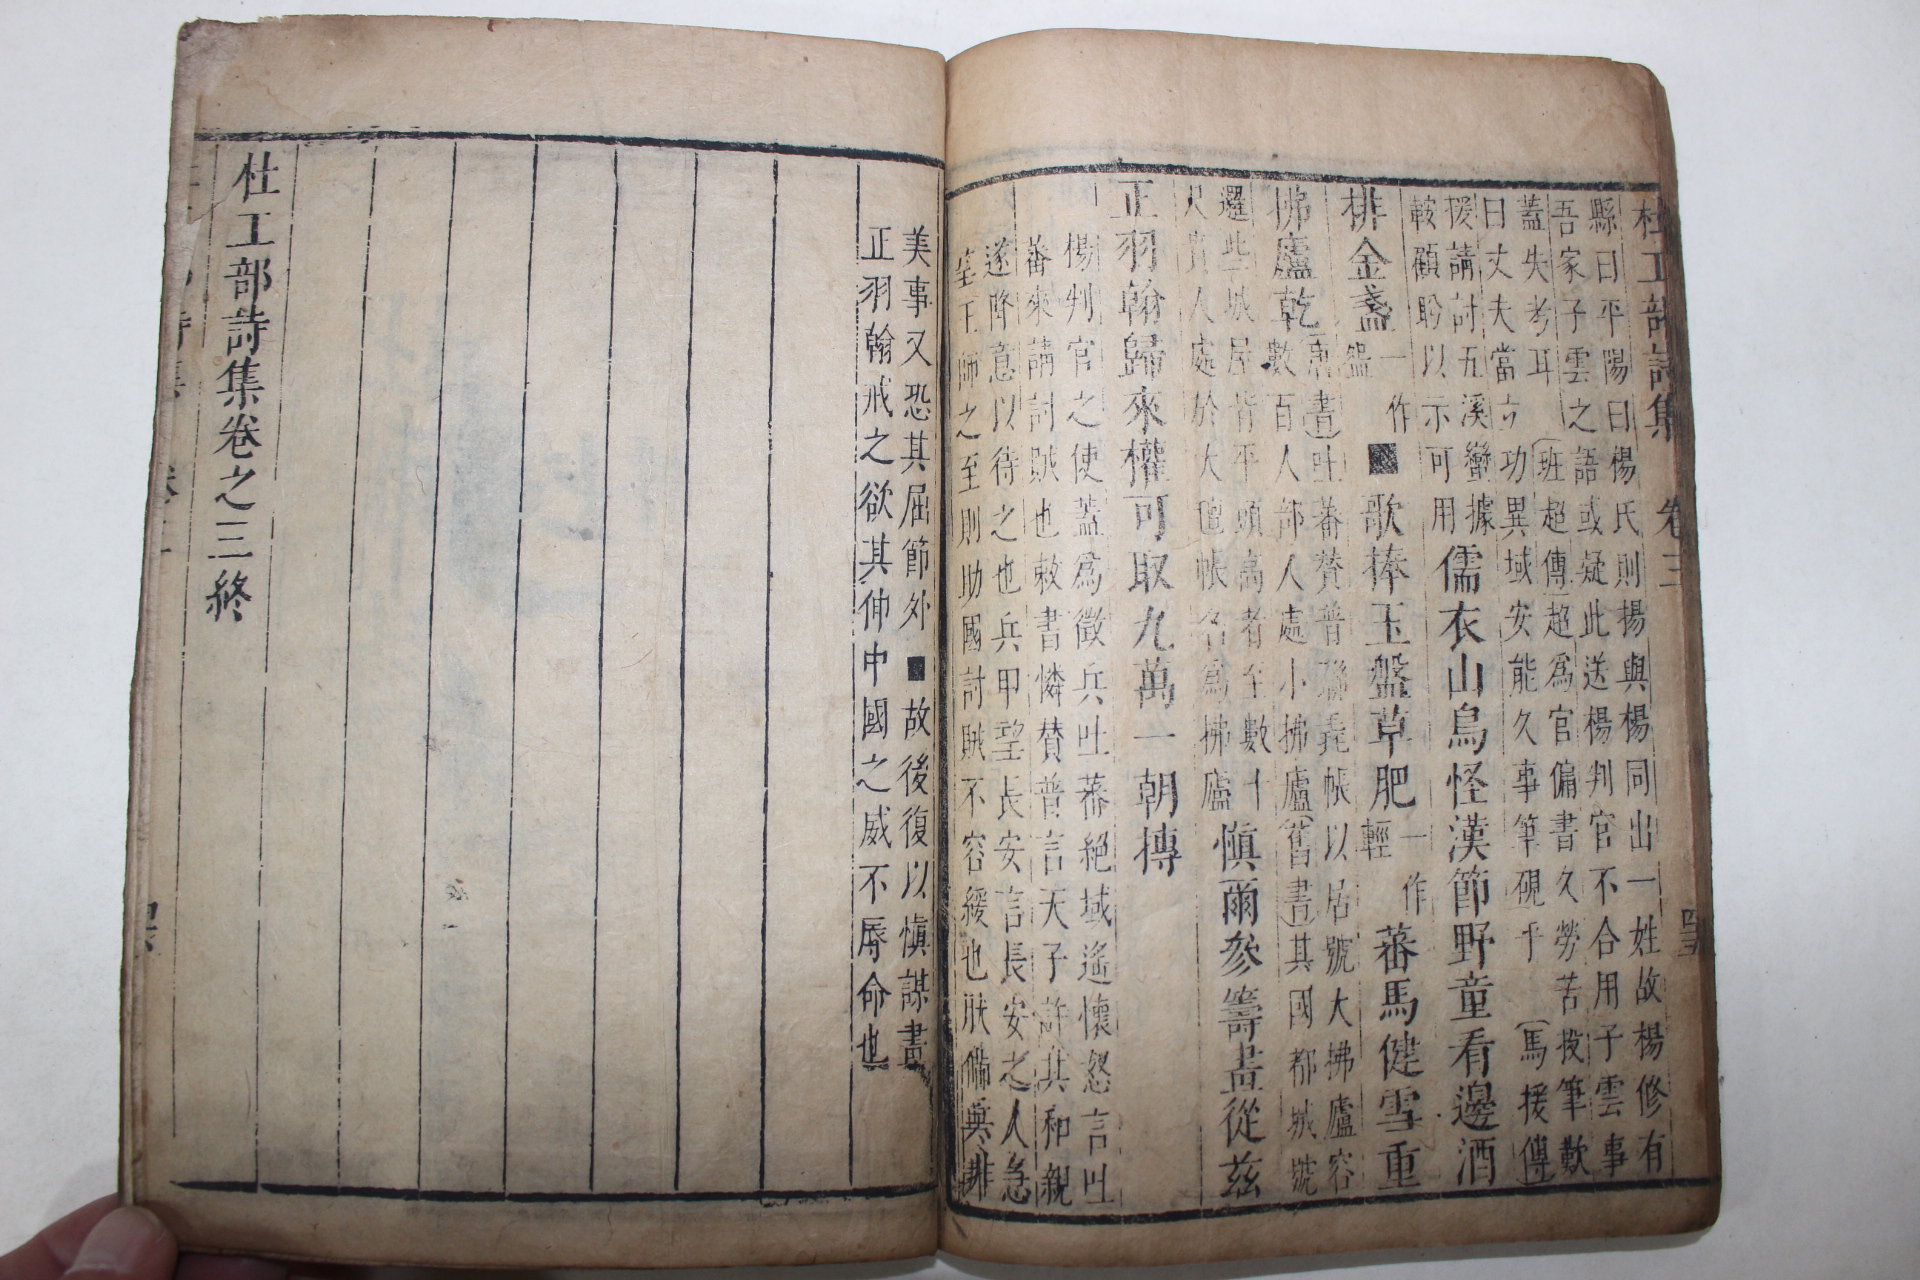 杜工部詩集 卷三
縣曰平陽曰楊氏則揚與楊同出一姓故楊修有
吾家子雲之語或疑此送楊判官不合用子雲事
蓋失考耳(班超傳)超爲官傭書久勞苦投筆歎
曰丈夫當立功異域安能久事筆硯乎(馬援傳)
援請討五溪蠻據
鞍顧眄以示可用儒衣山鳥怪漢節野童看邊酒
排金盞一作盤■歌捧玉盤草肥一作輕蕃馬健雪重
拂廬乾(唐書)吐蕃贊普聯毳帳以居號大拂廬容
數百人部人處小拂廬(舊書)其國都城號
邏些城屋皆平頭高者至數十
尺貴人處於大氊帳名爲拂廬愼爾參籌畫從茲
正羽翰歸來權可取九萬一朝摶
楊判官之使蓋爲徵兵吐蕃絕域遙懷怒言吐
蕃來請討賊也敕書憐贊普言天子許其和親
遂降意以待之也兵甲望長安言長安之人急
望王師之至則助國討賊不容緩也
美事又恐其屈節外■故後復以愼謀畫
正羽翰戒之欲其伸中國之威不辱命也
杜工部詩集卷之三終